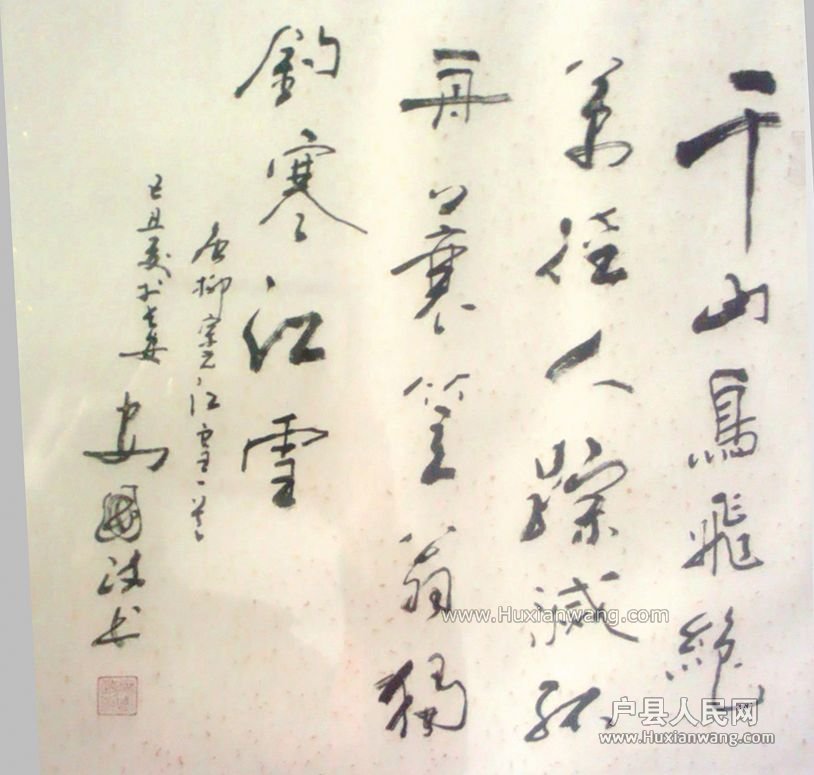 千山鳥飛絕
萬徑人踪滅孤
舟蓑笠翁獨
釣寒江雪
唐柳宗元江雪一首
己丑夏於长安
國政书
www.Huxianwang.com
户县人民网
www.Huxianwang.com